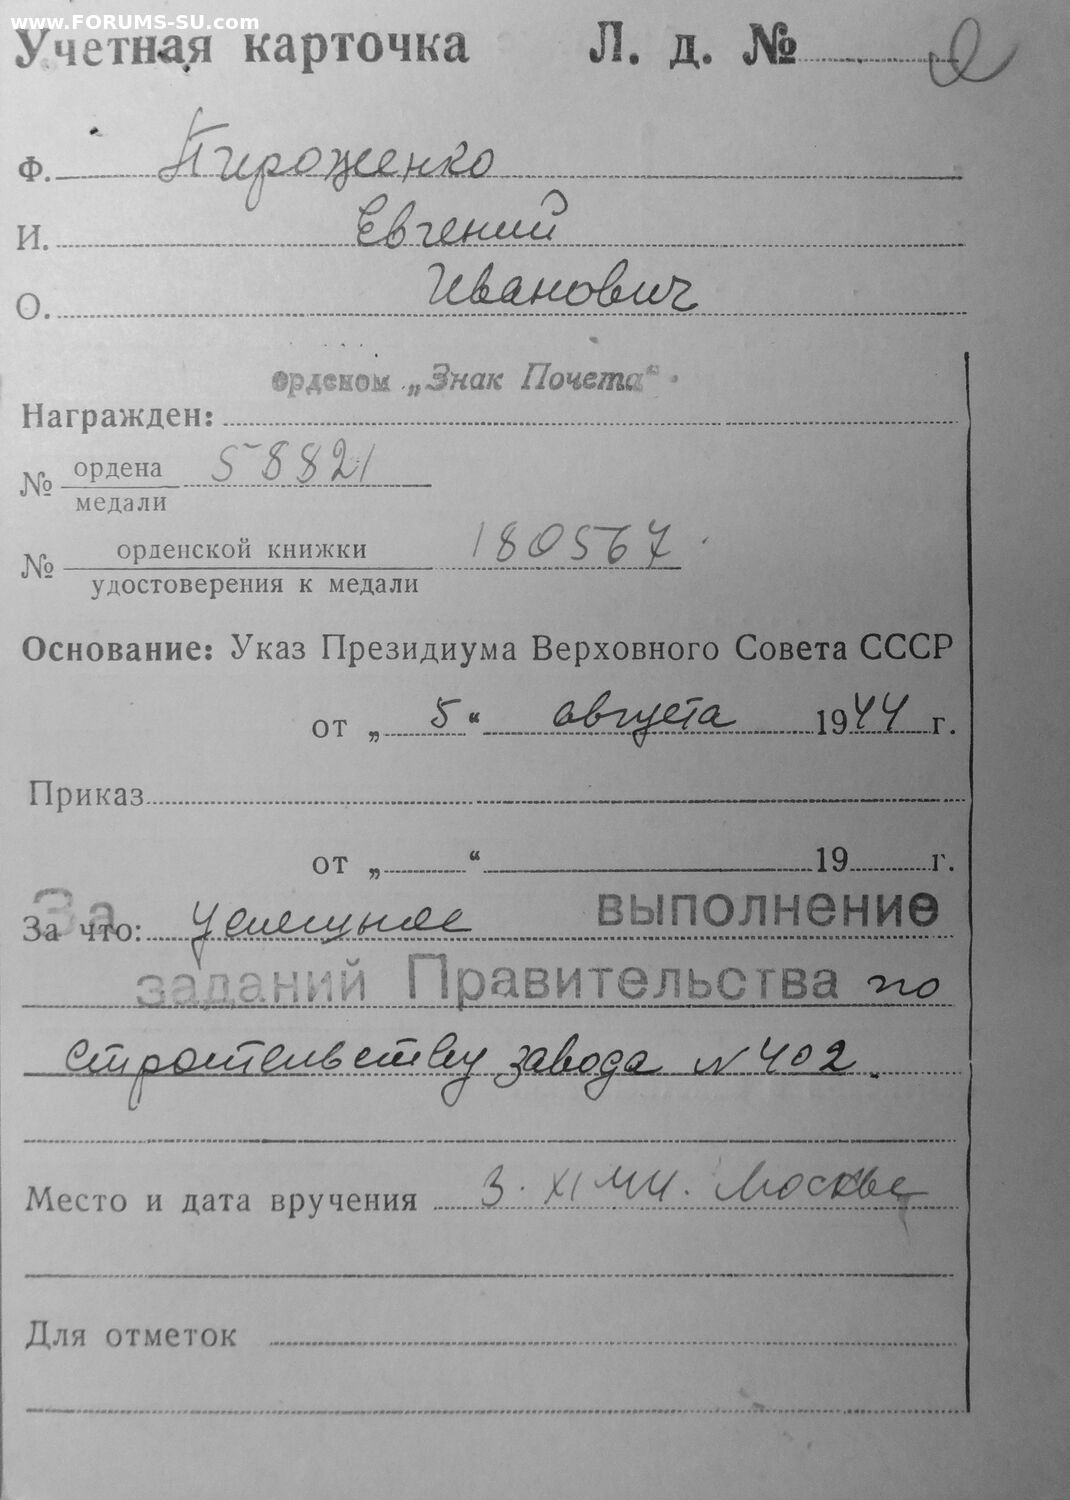 www.FORUMS-SU.com
Учетная карточка Л. д. №
Ф. Пироженко
И. Евгений
О. Иванович
орденом „Знак Почета“
Награжден:
№ ордена 58821
медали
№ орденской книжки 180567
удостоверения к медали
Основание: Указ Президиума Верховного Совета СССР
от „ 5 “ августа 1944 г.
Приказ
от „ “ 19 г.
За что: За успешное выполнение
заданий Правительства по
строительству завода N 402.
Место и дата вручения 3. XI 44. Москва
Для отметок